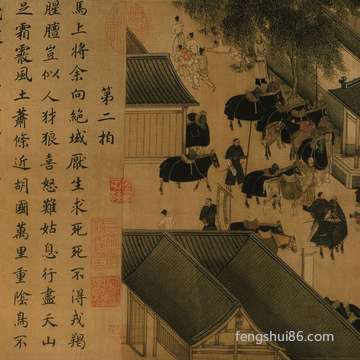 第二拍
馬上將余向絕域厭生求死死不得戎羯
腥膻豈似人犲狼喜怒難姑息行盡天山
足霜霰風土蕭條近胡國萬里重陰鳥不
fengshui86.com